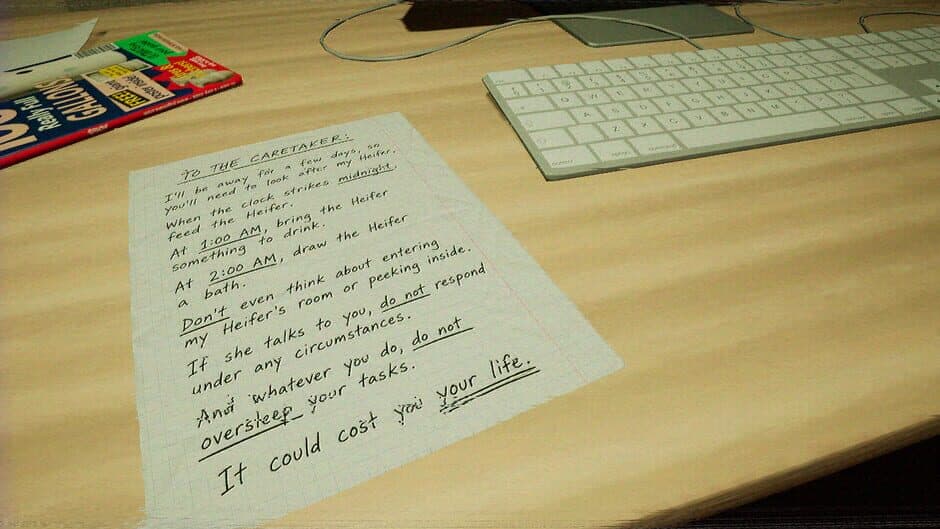 TO THE CARETAKER:
I'll be away for a few days, so
you'll need to look after my Heifer.
When the clock strikes midnight,
feed the Heifer.
At 1:00 AM, bring the Heifer
something to drink.
At 2:00 AM, draw the Heifer
a bath.
Don't even think about entering
my Heifer's room or peeking inside.
If she talks to you, do not respond
under any circumstances.
And whatever you do, do not
oversleep your tasks.
It could cost you your life.
Really Full
GALLONS
FREE